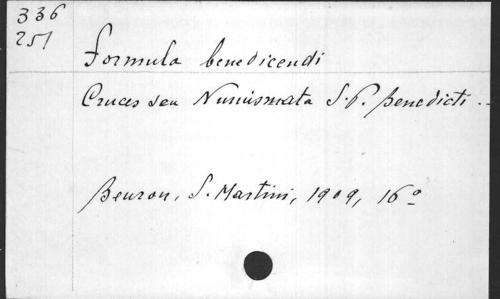 336
251
Formula benedicendi
Cruces seu Numismata S. P. Benedicti ..
Beuron, S. Martini, 1909, 16º